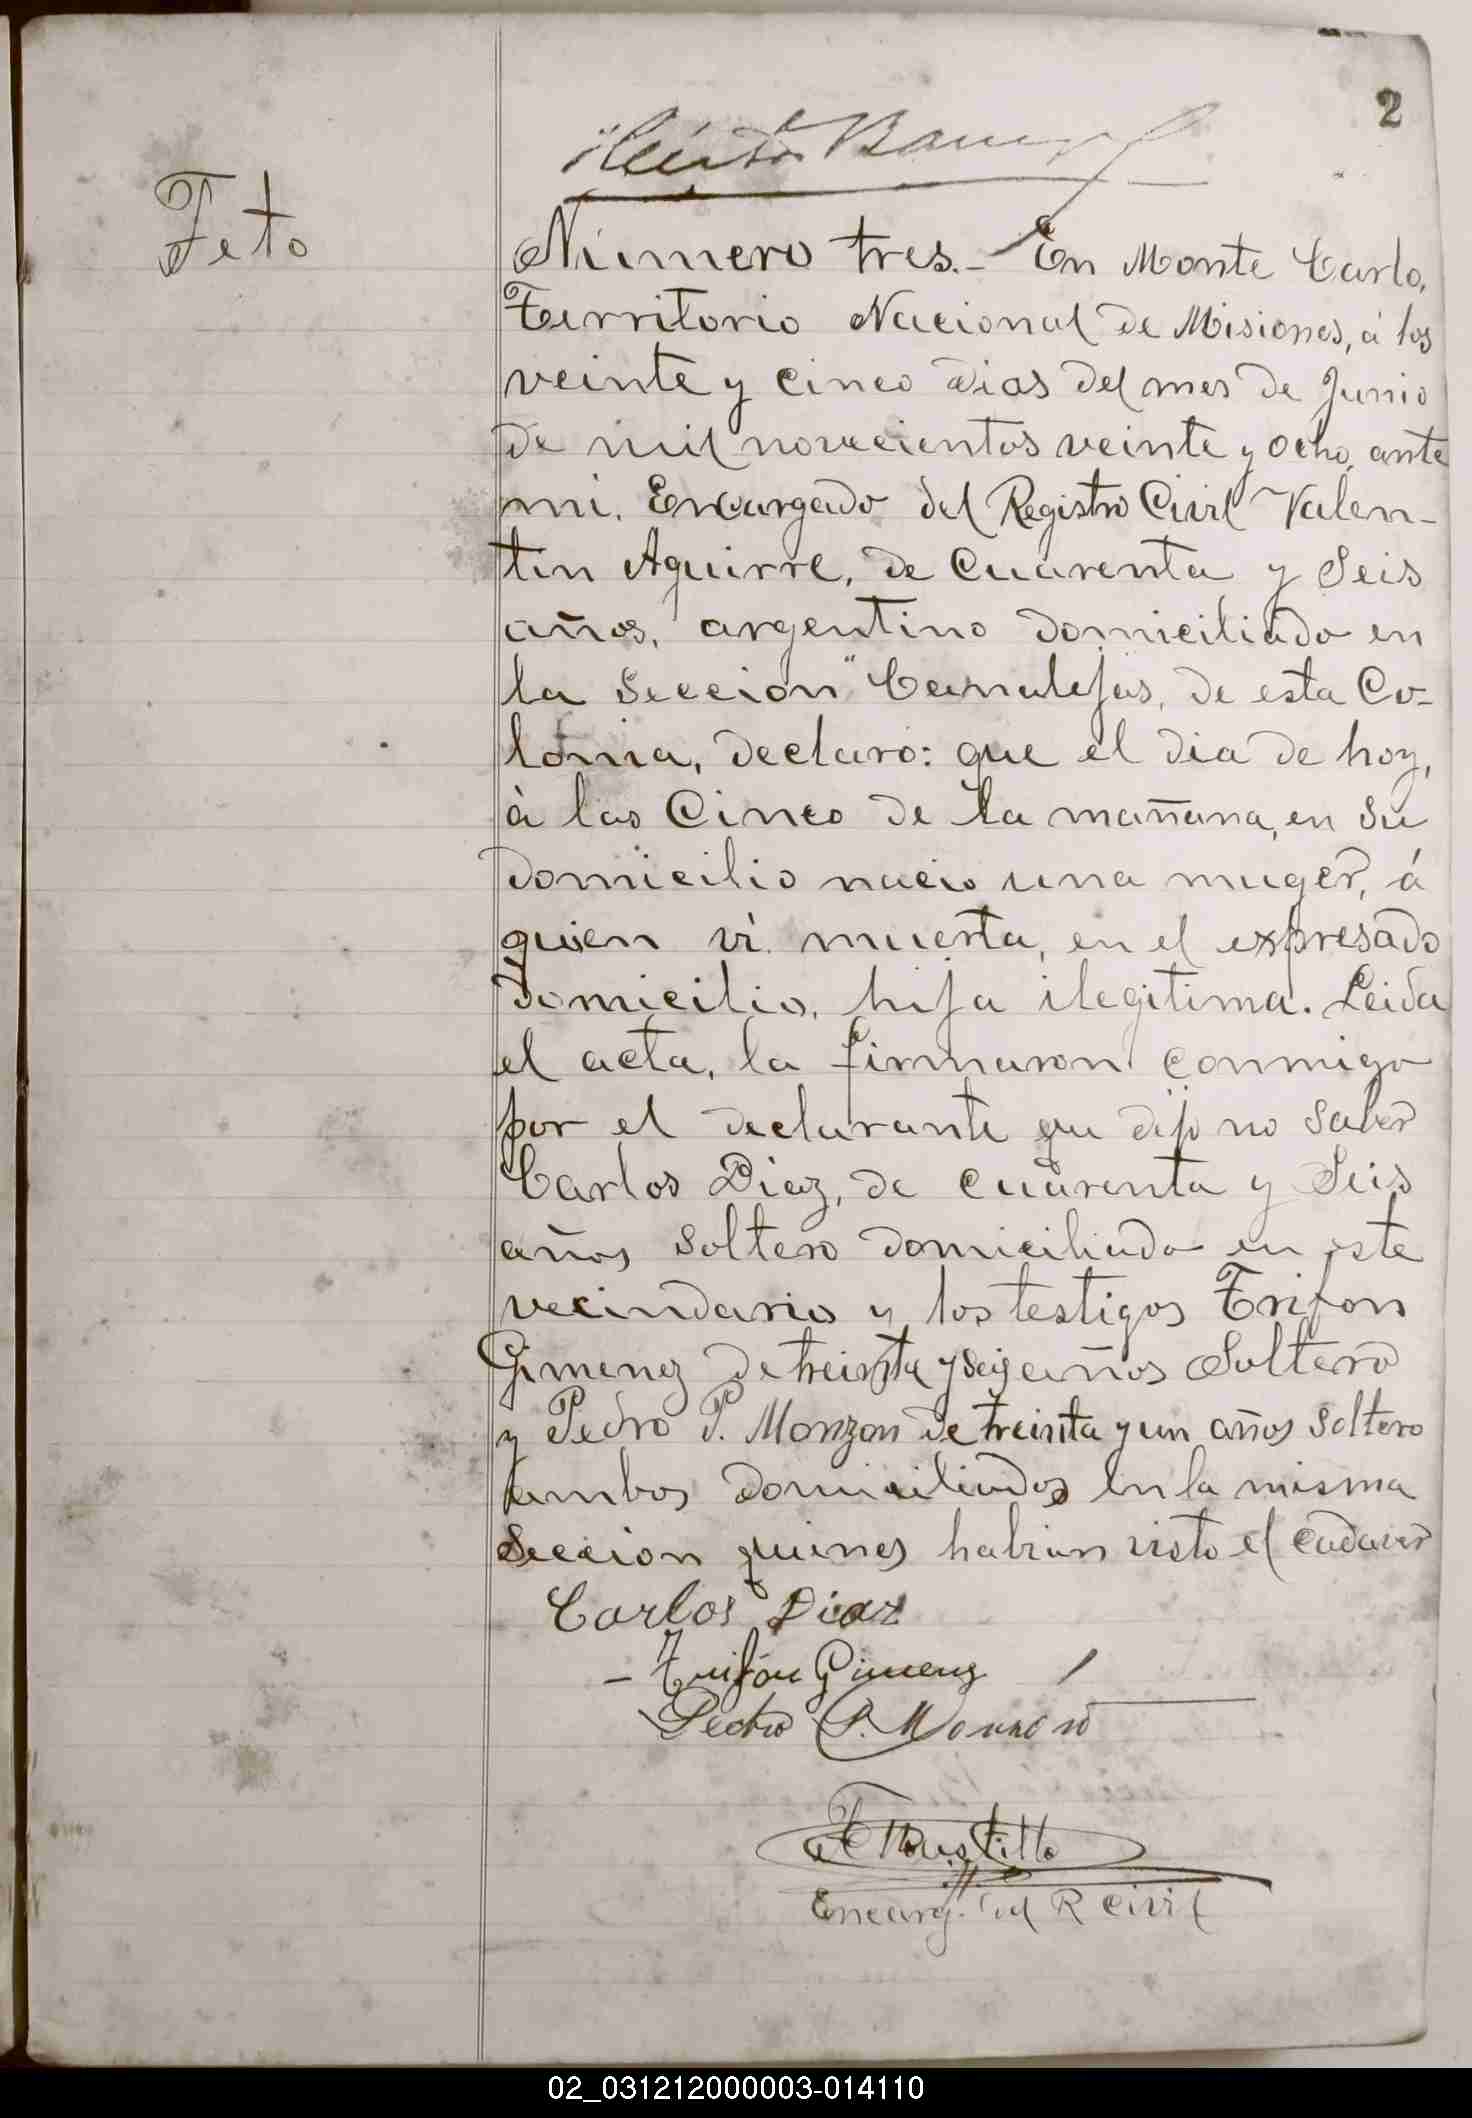 2
Feto
Número tres.- En Monte Carlo,
Territorio Nacional de Misiones, á los
veinte y cinco dias del mes de Junio
de mil novecientos veinte y ocho, ante
mi, Encargado del Registro Civil Valen-
tin Aguirre, de Cuarenta y Seis
años, argentino domiciliado en
la Seccion "Canalejas, de esta Co-
lonia, declaro: que el dia de hoy,
á las Cinco de la mañana, en su
domicilio nacio una muger, á
quien vi muerta, en el expresado
domicilio, hija ilegitima. Leida
el acta, la firmaron conmigo
por el declarante que dijo no saber
Carlos Diaz, de cuarenta y Seis
años soltero domiciliado en este
vecindario y los testigos Trifon
Gimenez de treinta y seis años Soltero
y Pedro P. Monzon de treinta y un años soltero
ambos domiciliados en la misma
Seccion quienes habian visto el cadaver
Carlos Diaz
- Trifón Gimenz
Pedro P. Monzon
Bustillo
Encarg. del R Civil
02_031212000003-014110